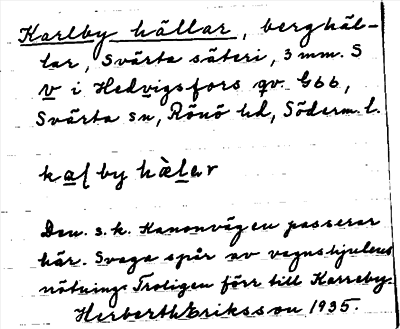 Karlby hällar, berghäl-
lar, Svärta säteri, 3 mm. S
v i Hedvigsfors qv. G66,
Svärta sn, Rönö hd, Söderm. l.
ka
by hälar
Den s.k. Kanonvägen passerar
här. Svaga spår av vagnshjulens
nötning. Troligen förr till Karreby.
Herberth Eriksson 1935.